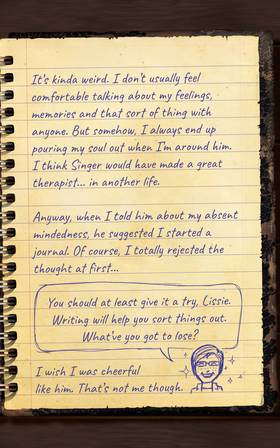 It's kinda weird. I don't usually feel
comfortable talking about my feelings,
memories and that sort of thing with
anyone. But somehow, I always end up
pouring my soul out when I'm around him.
I think Singer would have made a great
therapist... in another life.
Anyway, when I told him about my absent
mindedness, he suggested I started a
journal. Of course, I totally rejected the
thought at first...
You should at least give it a try, Lissie.
Writing will help you sort things out.
What've you got to lose?
I wish I was cheerful
like him. That's not me though.